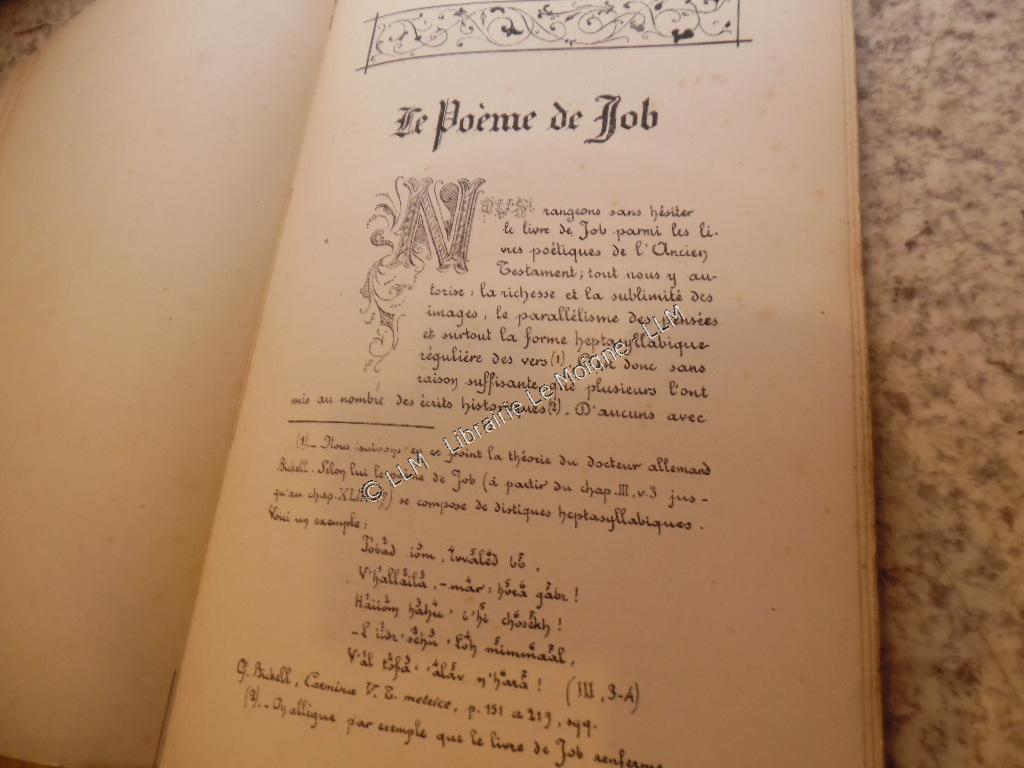 Le Poème de Job
Nous rangeons sans hésiter
le livre de Job parmi les li-
vres poétiques de l'Ancien
Testament; tout nous y au-
torise: la richesse et la sublimité des
images, le parallélisme des pensées
et surtout la forme heptasyllabique
régulière des vers (1). donc sans
raison suffisante que plusieurs l'ont
mis au nombre des écrits historiques (2). D'aucuns avec
(1)_ Nous suivons en ce point la théorie du docteur allemand
Bickell. Selon lui le poème de Job (à partir du chap. III, v. 3 jus-
qu'au chap. se compose de distiques heptasyllabiques.
Voici un exemple:
Jobad iom,
V'hallaila, -mar: hora gabr!
Haiiom hahu' i'hi chosekh!
mimmaal,
V'al tofa' 'alav n'hara! (III, 3-4)
Cf. Bickell, Carmina V. T. metrice, p. 151 et 219, sqq.
(2)_ On allègue par exemple que le livre de Job renferme
© LLM - Librairie Le Moigne - LLM